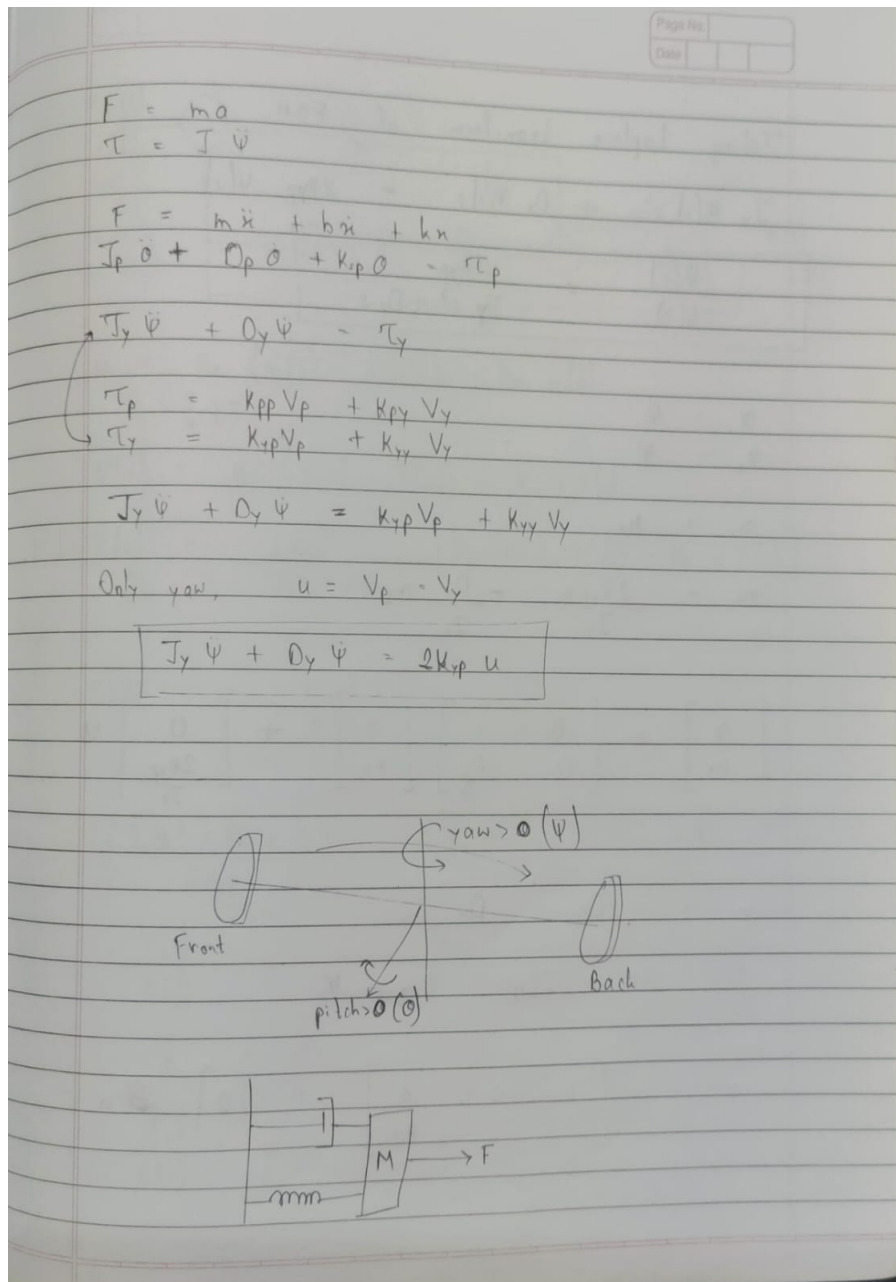 Page No.
Date
F = ma
τ = J ψ̈
F = mẍ + bẋ + kx
J_p θ̈ + D_p θ̇ + K_sp θ = τ_p
J_y ψ̈ + D_y ψ̇ = τ_y
τ_p = K_pp V_p + K_py V_y
τ_y = K_yp V_p + K_yy V_y
J_y ψ̈ + D_y ψ̇ = K_yp V_p + K_yy V_y
Only yaw, u = V_p = V_y
J_y ψ̈ + D_y ψ̇ = 2K_yp u
yaw > 0 (ψ)
Front
Back
pitch > 0 (θ)
M
F